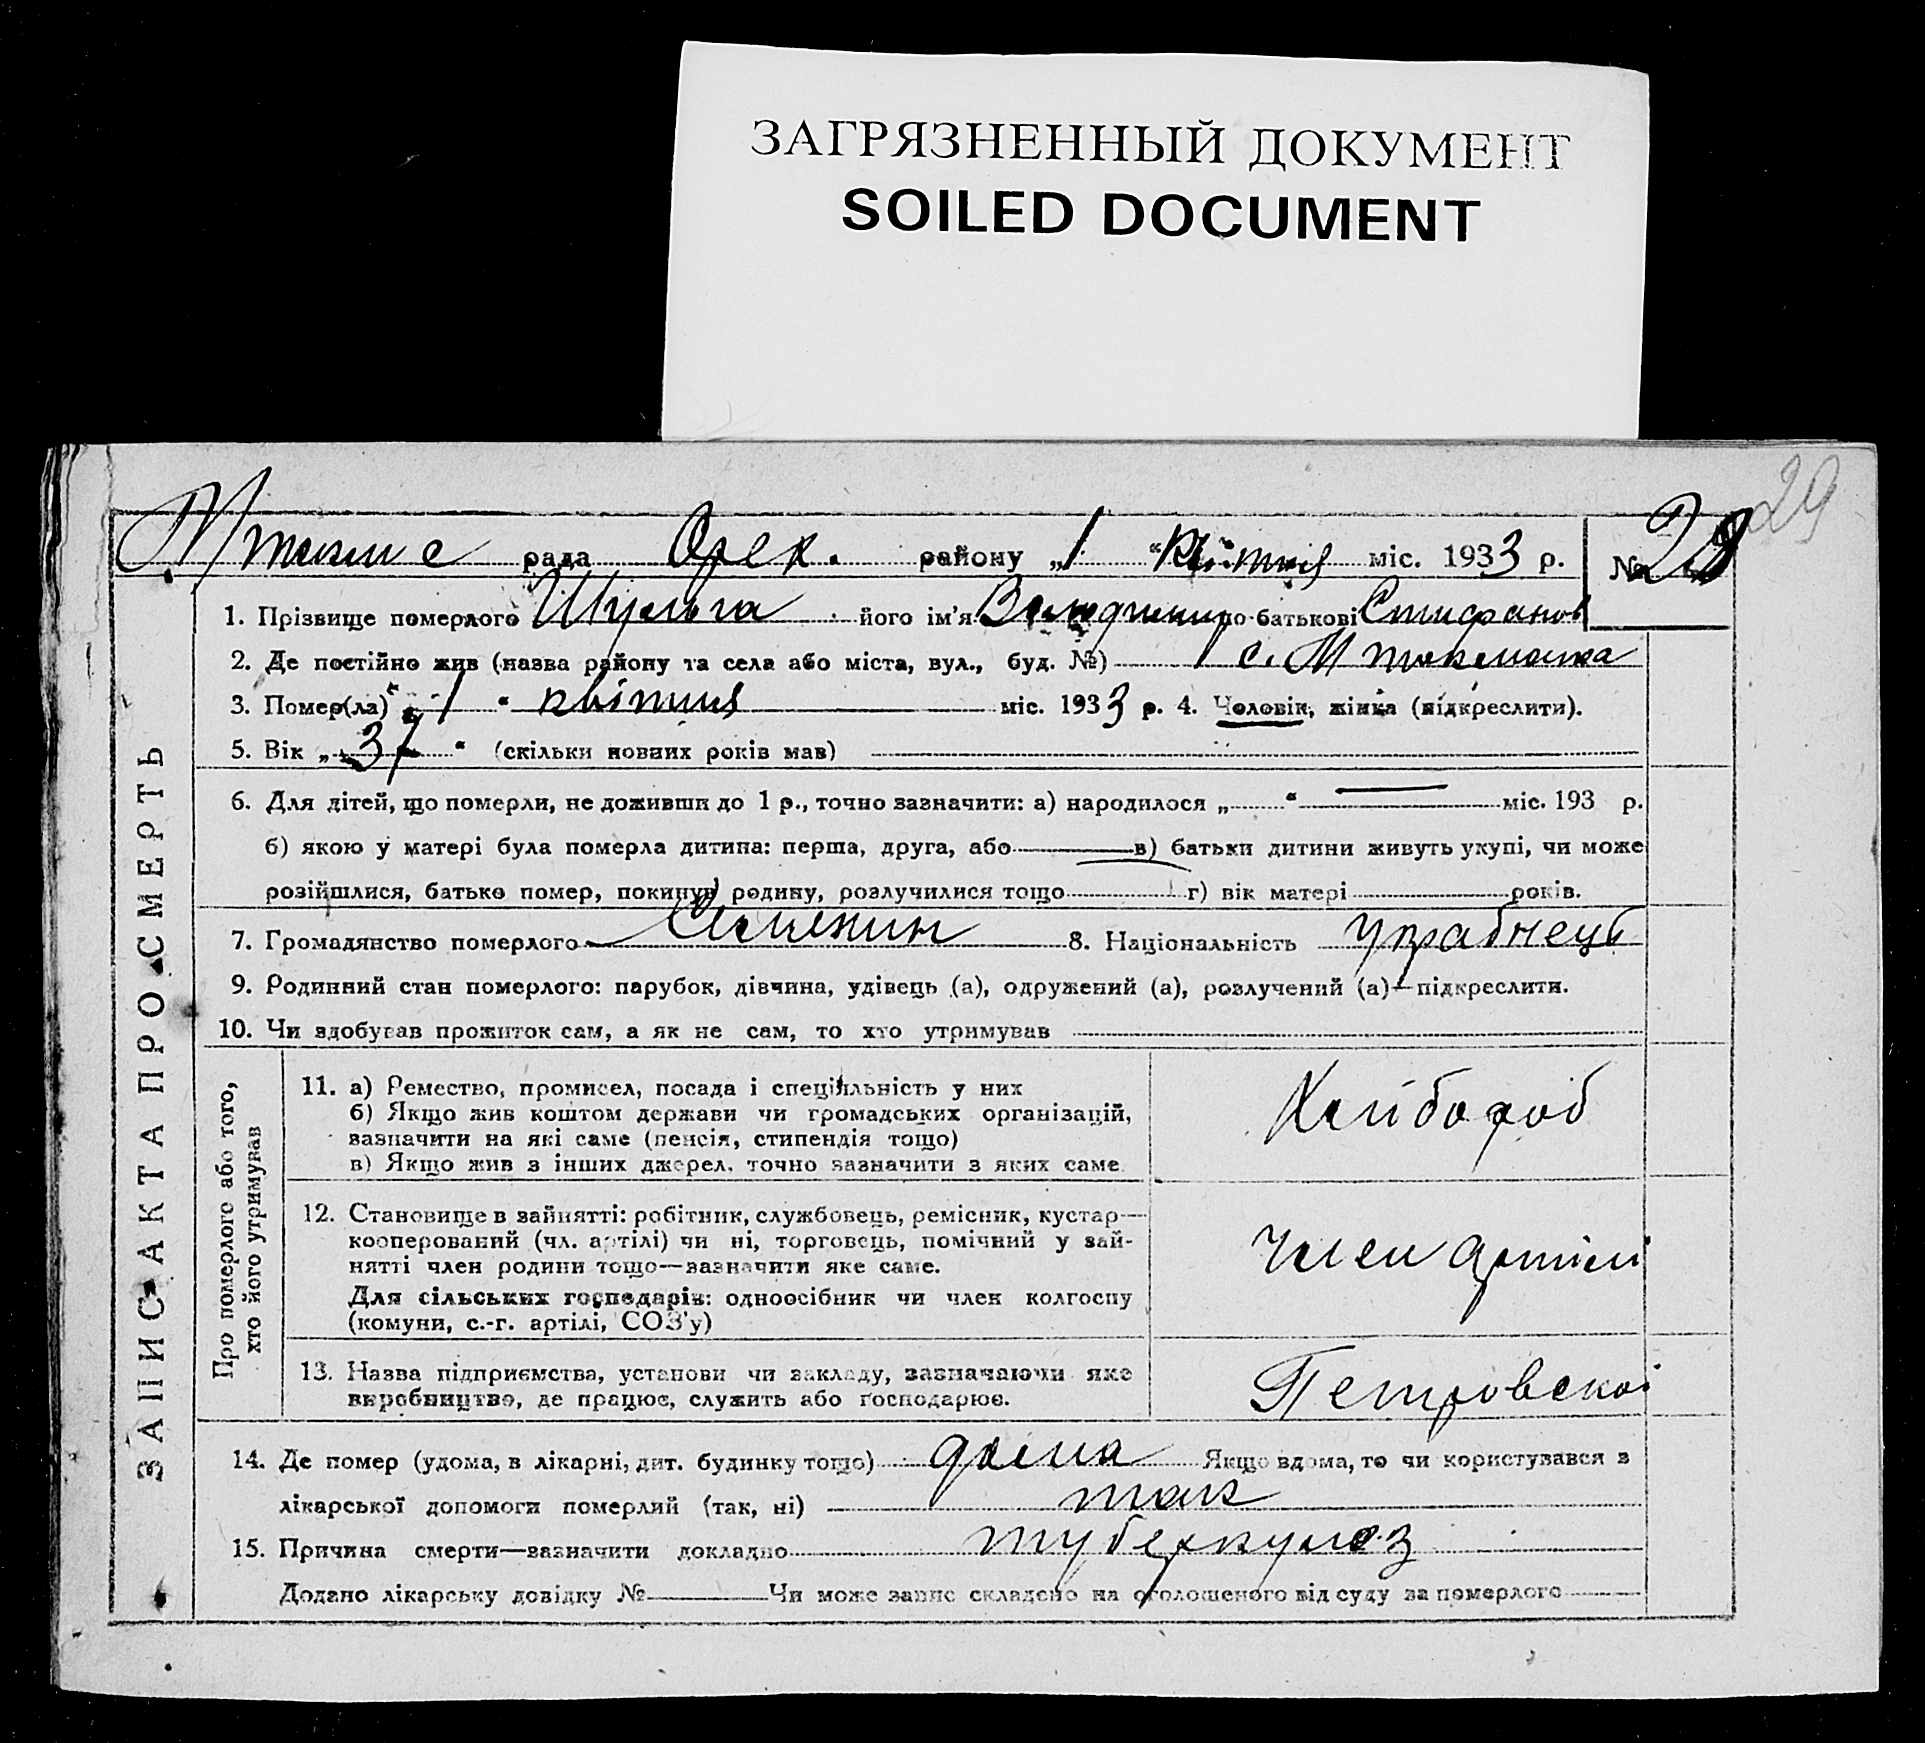 ЗАГРЯЗНЕННЫЙ ДОКУМЕНТ
SOILED DOCUMENT
29
рада Орех. району „1" квітня міс. 1933 р. № 28
1. Прізвище померлого Шульга його ім'я Володимир по-батькові Стифанов
2. Де постійно жив (назва району та села або міста, вул., буд. №) с. М Токмачка
3. Помер(ла) „1" квітня міс. 1933 р. 4. Чоловік, жінка (підкреслити).
5. Вік „37" (скільки повних років мав)
6. Для дітей, що померли, не доживши до 1 р., точно зазначити: а) народилося „ " міс. 193 р.
б) якою у матері була померла дитина: перша, друга, або в) батьки дитини живуть укупі, чи може
розійшлися, батько помер, покинув родину, розлучилися тощо г) вік матері років.
7. Громадянство померлого 8. Національність
9. Родинний стан померлого: парубок, дівчина, удівець (а), одружений (а), розлучений (а)—підкреслити.
10. Чи здобував прожиток сам, а як не сам, то хто утримував
ЗАПИС АКТА ПРО СМЕРТЬ
Про померлого або того,
хто його утримував
11. а) Ремество, промисел, посада і спеціяльність у них
б) Якщо жив коштом держави чи громадських організацій,
зазначити на які саме (пенсія, стипендія тощо)
в) Якщо жив з інших джерел, точно зазначити з яких саме
Хлібороб
12. Становище в зайнятті: робітник, службовець, ремісник, кустар—
кооперований (чл. артілі) чи ні, торговець, помічний у зай-
нятті член родини тощо—зазначити яке саме.
Для сільських господарів: одноосібник чи член колгоспу
(комуни, с.-г. артілі, СОЗ'у)
член артілі
13. Назва підприємства, установи чи закладу, зазначаючи яке
виробництво, де працює, служить або господарює.
Петровской
14. Де помер (удома, в лікарні, дит. будинку тощо) дома Якщо вдома, то чи користувався з
лікарської допомоги померлий (так, ні) так
15. Причина смерти—зазначити докладно туберкульоз
Додано лікарську довідку № Чи може запис складено на оголошеного від суду за померлого